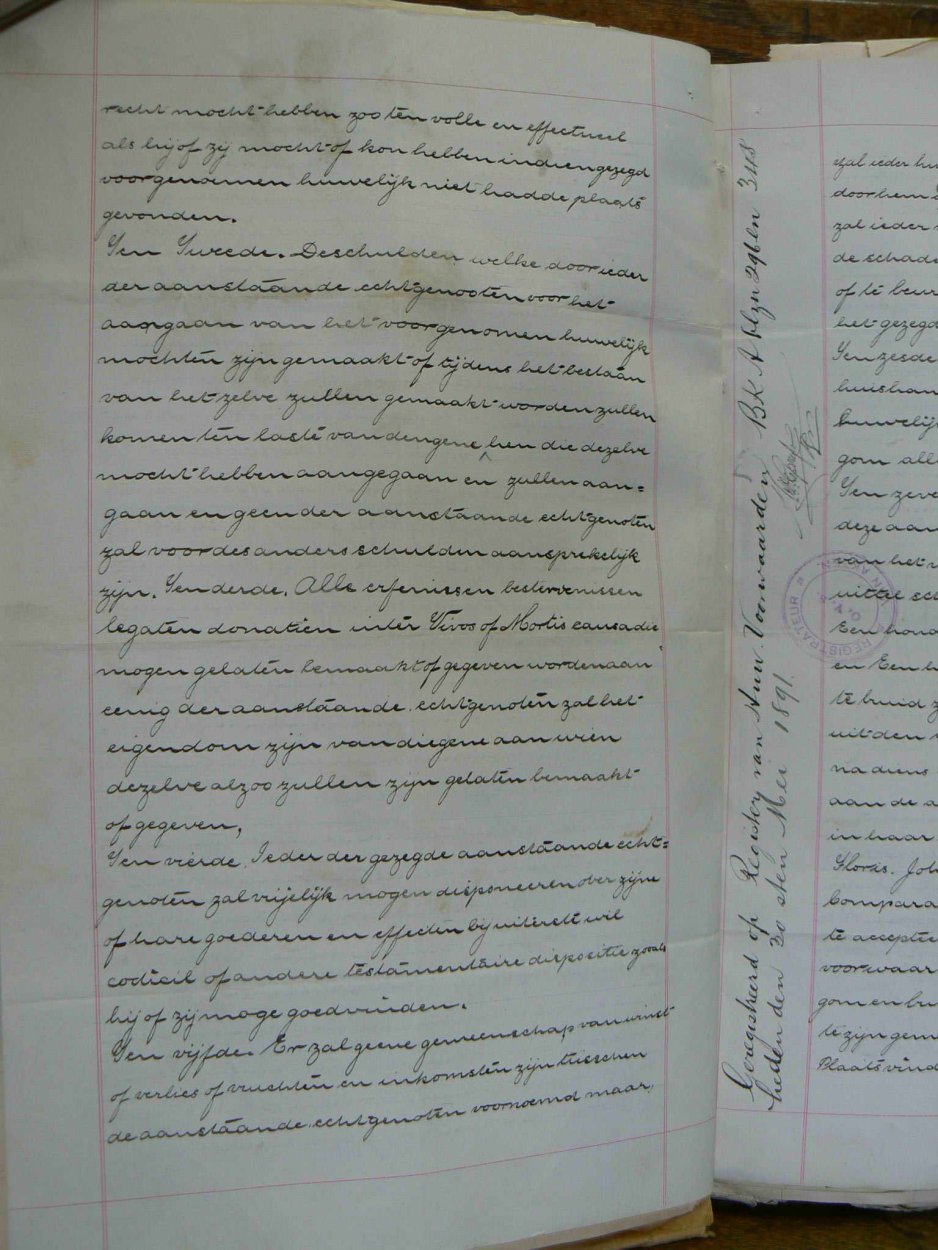 recht mocht hebben zoo ten volle en effectueel
als hij of zij mocht of kon hebben indien gezegd
voorgenoemen huwelijk niet hadde plaats
gevonden.
Ten Tweede. De schulden welke door ieder
der aanstaande echtgenooten voor het
aangaan van het voorgenomen huwelijk
mochten zijn gemaakt of tijdens het bestaan
van het zelve zullen gemaakt worden zullen
komen ten laste van dengene hen die dezelve
mocht hebben aangegaan en zullen aan=
gaan en geen der aanstaande echtgenoten
zal voor des anders schulden aansprekelijk
zijn. Ten derde. Alle erfenissen bestervenissen
legaten donatien inter Vivos of Mortis causa die
mogen gelaten bemaakt of gegeven worden aan
eenig der aanstaande echtgenoten zal het
eigendom zijn van diegene aan wien
dezelve alzoo zullen zijn gelaten bemaakt
of gegeven,
Ten vierde. Ieder der gezegde aanstaande echt=
genoten zal vrijelijk mogen disponeeren over zijne
of hare goederen en effecten bij uiterste wil
codicil of andere testamentaire dispositie zooals
hij of zij moge goedvinden.
Ten vijfde. Er zal geene gemeenschap van winst
of verlies of vruchten en inkomsten zijn tusschen
de aanstaande echtgenoten voornoemd maar
Geregistreerd op Register van Huw. Voorwaarden BK A blzn 296 en 348
heden den 30 sten Mei 1891.
REGISTRATEUR
zal ieder
door hem
zal ieder
de schade
of te beur
het gezegd
Ten zesde
huishou
huwelij
gom all
Ten zeve
deze aan
van het
uitte sch
Een hond
en Een h
te bruid z
uit den
na diens
aan de a
in haar
Floris. Joh
Compara
te accepte
voorwaar
gom en bru
te zijn gem
Plaatsvind